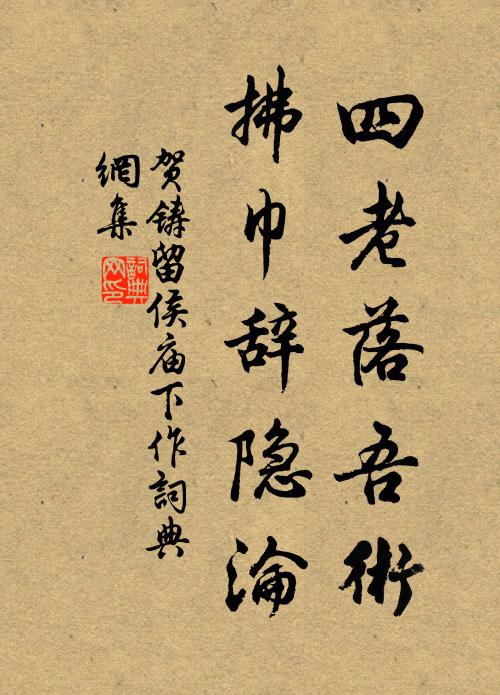 四老落吾術
拂巾辞隐淪
贺鑄留侯庙下作詞典
網集
詞典
网印